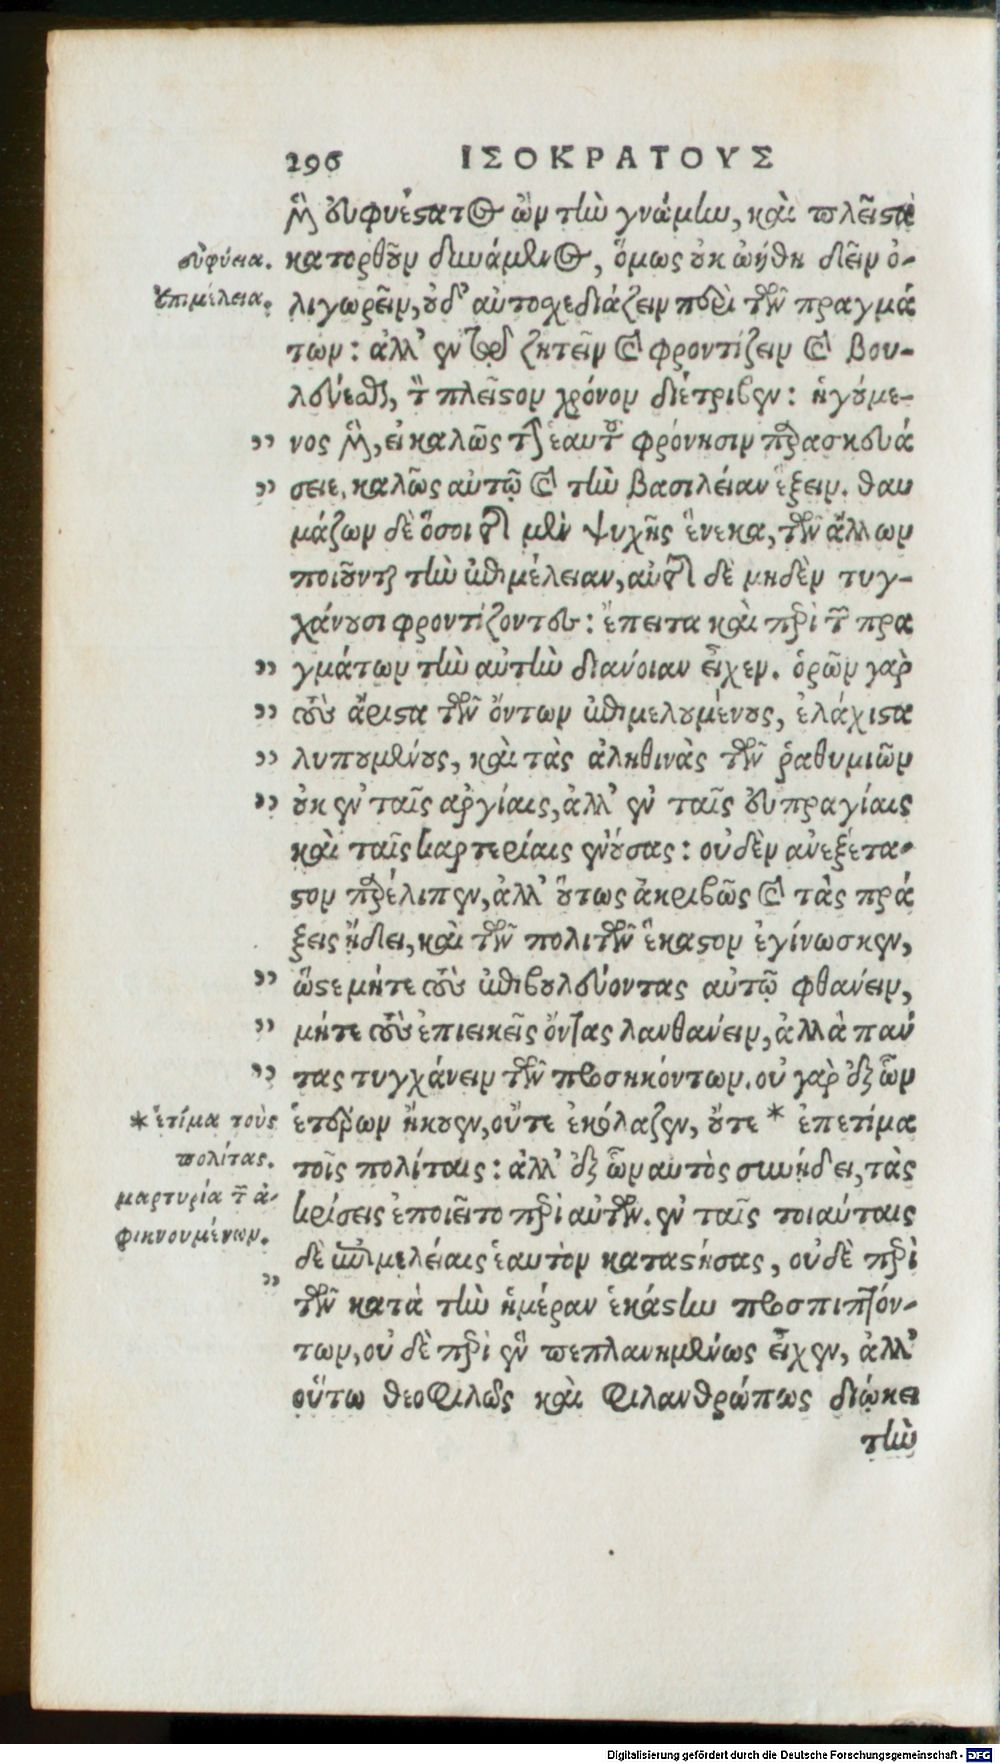 296 ΙΣΟΚΡΑΤΟΥΣ
μὲν εὐφυέστατος ὢν τὴν γνώμην, καὶ πλεῖστα
εὐφύεια. κατορθοῦν δυνάμενος, ὅμως οὐκ ᾠήθη δεῖν ὀ-
ἐπιμέλεια. λιγωρεῖν, οὐδ' αὐτοσχεδιάζειν περὶ τῶν πραγμά
των: ἀλλ' ἐν τῷ ζητεῖν καὶ φροντίζειν καὶ βου-
λεύεσθαι, τὸν πλεῖστον χρόνον διέτριβεν: ἡγούμε-
" νος μὲν, εἰ καλῶς τὴν ἑαυτοῦ φρόνησιν παρασκευά
" σειε, καλῶς αὐτῷ καὶ τὴν βασιλείαν ἕξειν. θαυ
μάζων δὲ ὅσοι τῆς μὲν ψυχῆς ἕνεκα, τῶν ἄλλων
ποιοῦνται τὴν ἐπιμέλειαν, αὐτῆς δὲ μηδὲν τυγ-
χάνουσι φροντίζοντες: ἔπειτα καὶ περὶ τῶν πρα
" γμάτων τὴν αὐτὴν διάνοιαν εἶχεν. ὁρῶν γὰρ
" τοὺς ἄριστα τῶν ὄντων ἐπιμελουμένους, ἐλάχιστα
" λυπουμένους, καὶ τὰς ἀληθινὰς τῶν ῥαθυμιῶν
" οὐκ ἐν ταῖς ἀργίαις, ἀλλ' ἐν ταῖς εὐπραγίαις
καὶ ταῖς καρτερίαις ἐνούσας: οὐδὲν ἀνεξέτα-
στον παρέλιπεν, ἀλλ' οὕτως ἀκριβῶς καὶ τὰς πρά
ξεις ᾔδει, καὶ τῶν πολιτῶν ἕκαστον ἐγίνωσκεν,
" ὥστε μήτε τοὺς ἐπιβουλεύοντας αὐτῷ φθάνειν,
" μήτε τοὺς ἐπιεικεῖς ὄντας λανθάνειν, ἀλλὰ πάν
" τας τυγχάνειν τῶν προσηκόντων. οὐ γὰρ ἐξ ὧν
* ἐτίμα τοὺς ἑτέρων ἤκουεν, οὔτε ἐκόλαζεν, οὔτε * ἐπετίμα
πολίτας. τοῖς πολίταις: ἀλλ' ἐξ ὧν αὐτὸς συνῄδει, τὰς
μαρτυρία τῶν ἀ- κρίσεις ἐποιεῖτο περὶ αὐτῶν. ἐν ταῖς τοιαύταις
φικνουμένων. δὲ ἐπιμελείαις ἑαυτὸν καταστήσας, οὐδὲ περὶ
" τῶν κατὰ τὴν ἡμέραν ἑκάστην προσπιπτόν-
των, οὐδὲ περὶ ἓν πεπλανημένως εἶχεν, ἀλλ'
οὕτω θεοφιλῶς καὶ φιλανθρώπως διῴκει
τὴν
Digitalisierung gefördert durch die Deutsche Forschungsgemeinschaft - DFG